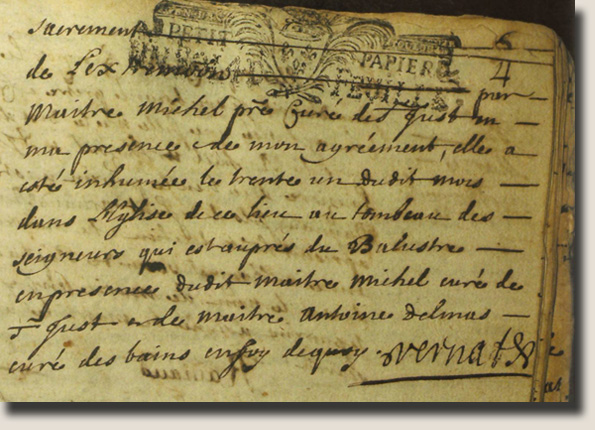 sacrement
PETIT PAPIER
6
4
de Lextremonction par
Maitre Michel pre Curé de st Just en
ma presence et de mon agrément, elle a
esté inhumée le trente un dudit mois
dans l'Eglise de ce lieu au tombeau des
seigneurs qui est auprés du Balustre
en presence dudit maitre michel curé de
st Just et de maitre antoine delmas
curé des bains en foy dequoy.